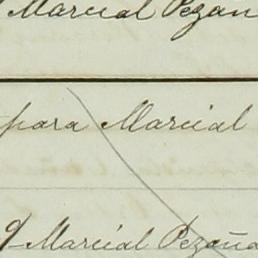 Marcial Pezañ
para Marcial
9 Marcial Pezaña